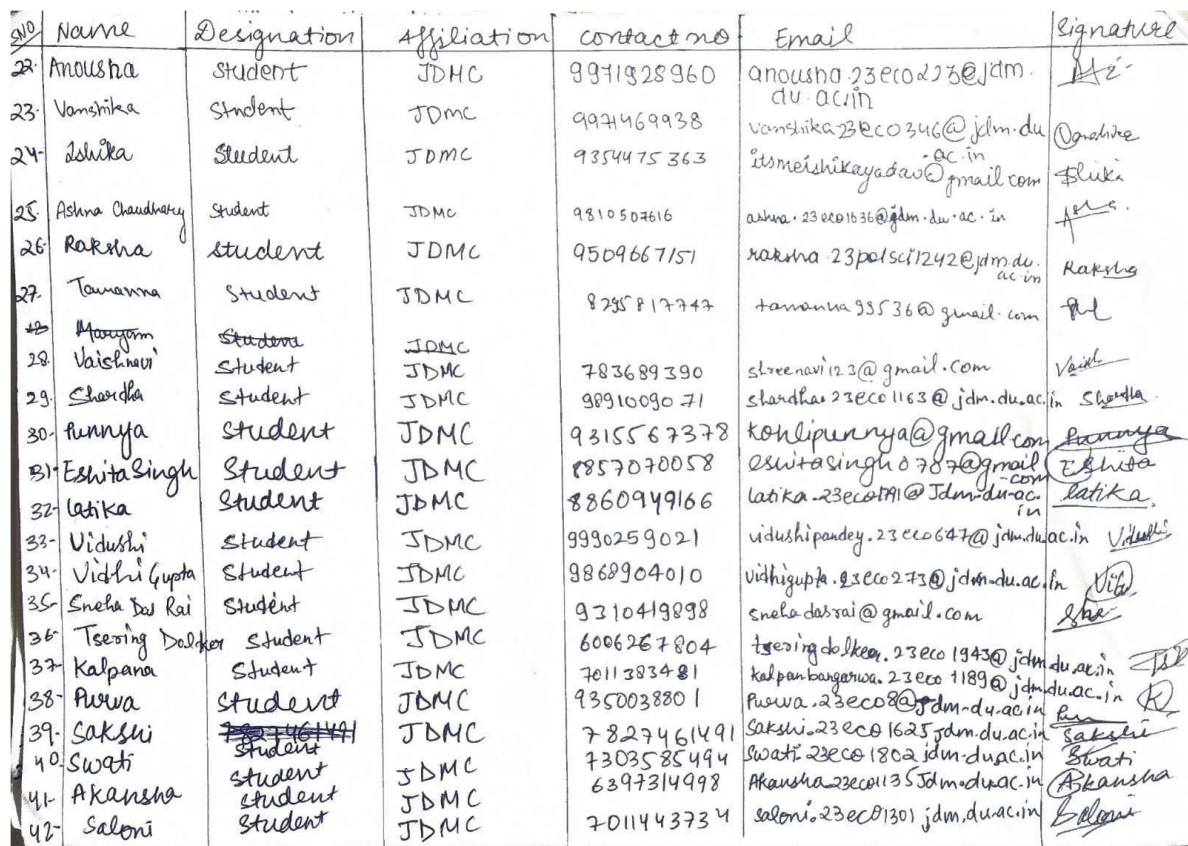 SNO Name Designation Affiliation contact no Email Signature
22. Anousha Student JDMC 9971928960 anousha.23eco223@jdm.
du.ac.in
23. Vanshika Student JDMC 9971469938 vanshika23eco346@jdm.du Vanshika
ac.in
24- Ishika Student JDMC 9354475363 itsmeishikayadav@gmail com
25. Ashna Chaudhary Student JDMC 9810507616 ashna.23eco1636@jdm.du.ac.in
26 Raksha Student JDMC 9509667151 raksha.23polsci1242@jdm.du. Raksha
ac.in
27. Tamanna Student JDMC 8295817747 tamanna99536@gmail.com
Maryam Student JDMC
28. Vaishnavi Student JDMC 783689390 shreenavi123@gmail.com
29. Shardha Student JDMC 9891009071 shardha.23eco1163@jdm.du.ac.in Shardha
30- Punnya Student JDMC 9315567378 kohlipunnya@gmail.com Punnya
31- Eshita Singh Student JDMC 8857070058 eshitasingh0707@gmail Eshita
.com
32- latika Student JDMC 8860949166 latika.23eco1791@Jdm.du.ac. latika
in
33- Vidushi Student JDMC 9990259021 vidushipandey.23eco647@jdm.du.ac.in Vidushi
34- Vidhi Gupta Student JDMC 9868904010 vidhigupta.23eco273@jdm.du.ac.in
35- Sneha Das Rai Student JDMC 9310419898 snehadasrai@gmail.com
36- Tsering Dolker Student JDMC 6006267804 tseringdolker.23eco1943@jdm.du.ac.in
37- Kalpana Student JDMC 7011383481 kalpanbangarwa.23eco1189@jdm.du.ac.in K
38- Purwa Student JDMC 9350038801 Purwa.23eco8@Jdm-du-ac.in
39- Sakshi 7827461491 7827461491 Sakshi.23eco1625jdm.du.ac.in Sakshi
Student
40- Swati Student JDMC 7303585494 Swati.23eco1802jdm-du.ac.in Swati
41- Akansha Student JDMC 6397314998 Akansha.23eco1135Jdm.du.ac.in Akansha
42- Saloni Student JDMC 7011443734 saloni.23eco1301jdm.du.ac.in Saloni